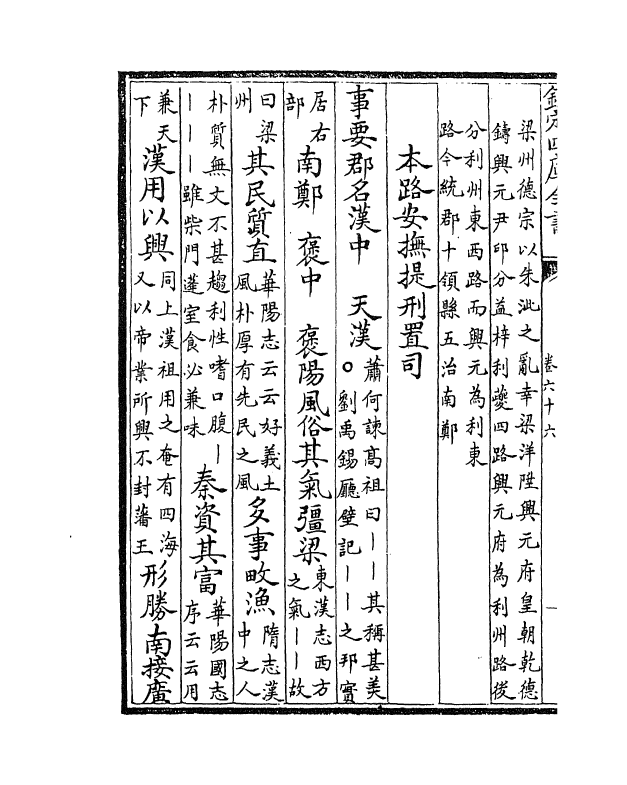 欽定四庫全書 卷六十六 一
梁州德宗以朱泚之亂幸梁洋陞興元府皇朝乾德
鑄興元尹印分益梓利夔四路興元府為利州路後
分利州東西路而興元為利東
路今統郡十領縣五治南鄭
本路安撫提刑置司
事要郡名漢中 天漢 蕭何諫高祖曰——其稱甚美○劉禹錫廳壁記——之邦實
居右部 南鄭 褒中 褒陽風俗其氣彊梁 東漢志西方之氣——故
曰梁州 其民質直 華陽志云云好義土風朴厚有先民之風 多事畋漁 隋志漢中之人
朴質無文不甚趨利性嗜口腹————雖柴門蓬室食必兼味 秦資其富 華陽國志序云云用
兼天下 漢用以興 同上漢祖用之奄有四海又以帝業所興不封藩王 形勝南接廣